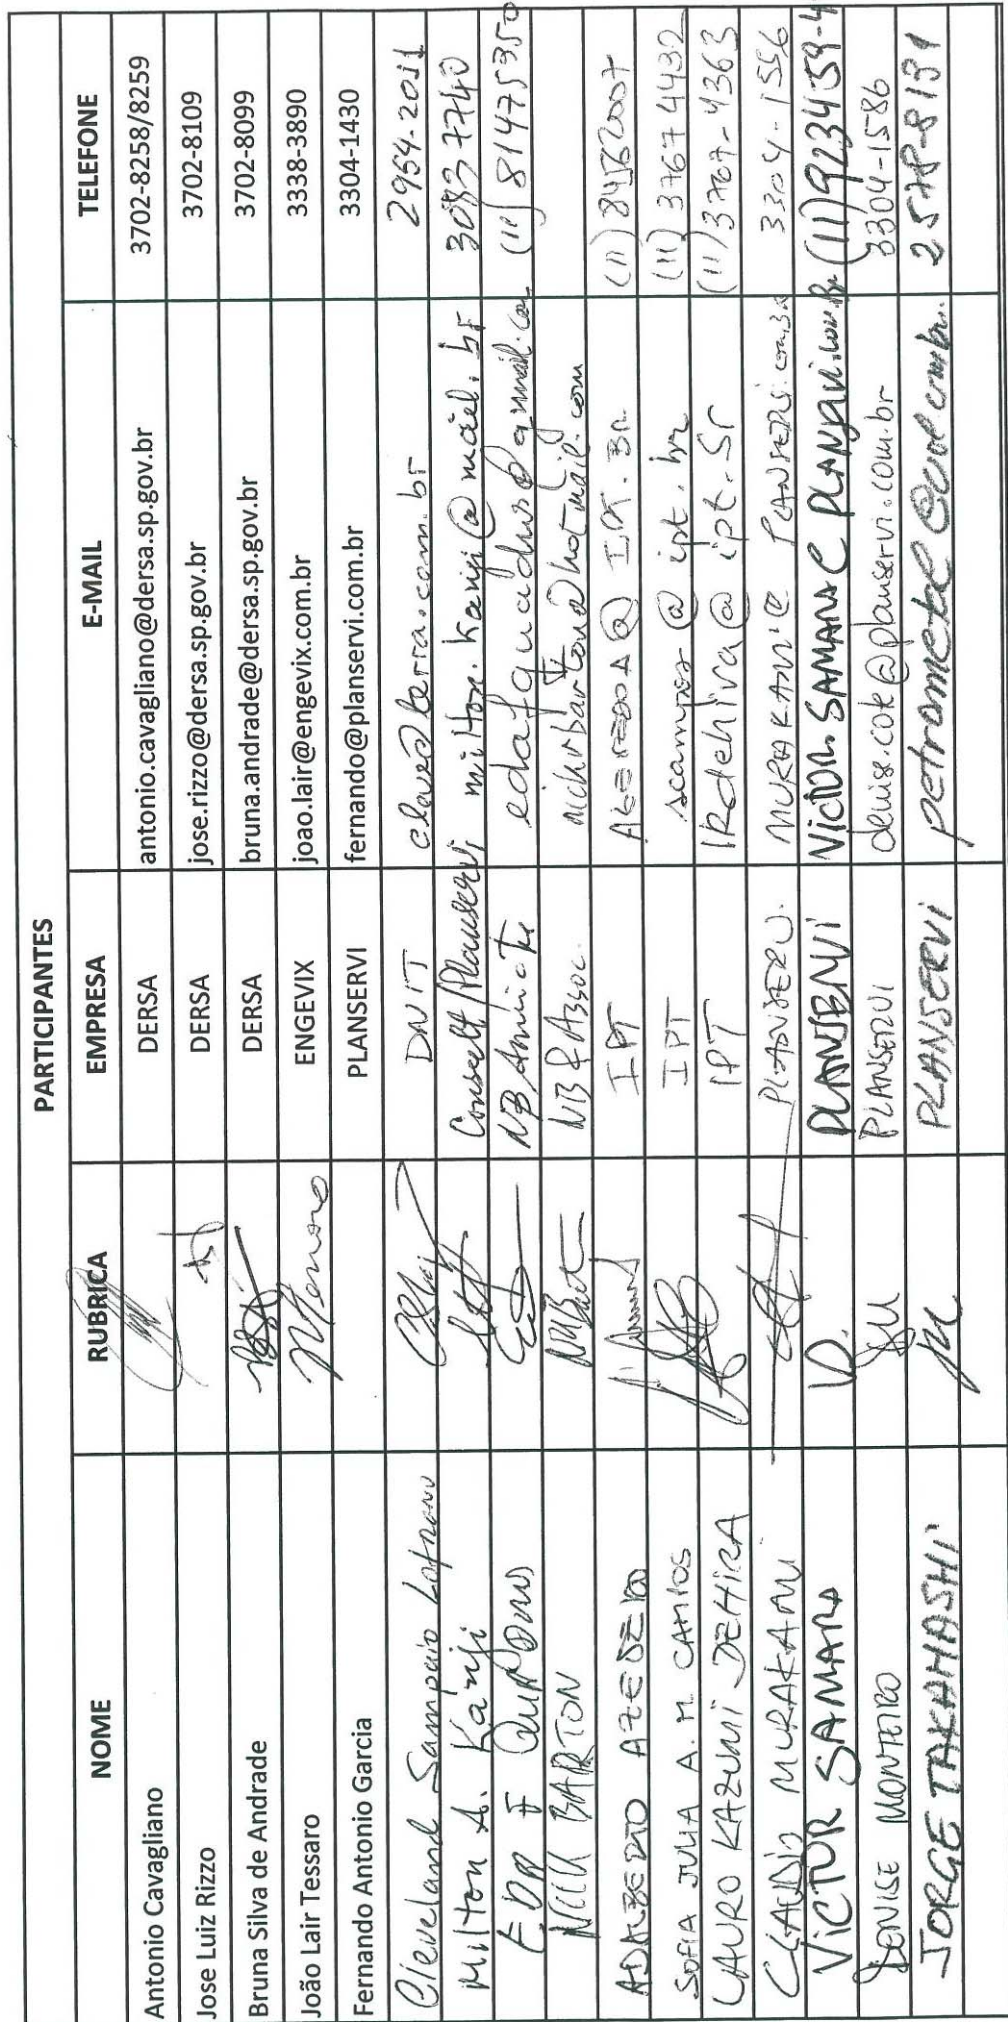 PARTICIPANTES
NOME RUBRICA EMPRESA E-MAIL TELEFONE
Antonio Cavagliano DERSA antonio.cavagliano@dersa.sp.gov.br 3702-8258/8259
Jose Luiz Rizzo DERSA jose.rizzo@dersa.sp.gov.br 3702-8109
Bruna Silva de Andrade DERSA bruna.andrade@dersa.sp.gov.br 3702-8099
João Lair Tessaro ENGEVIX joao.lair@engevix.com.br 3338-3890
Fernando Antonio Garcia PLANSERVI fernando@planservi.com.br 3304-1430
Cleveland Sampaio DNIT 2954-2011
Milton A. Kanji Consult/Planservi milton.kanji@mail.br 3083 7740
EDA F QUADROS (11) 81475350
NICK BARTON NB & Assoc. nickrbarton@hotmail.com
ADALBERTO AZEVEDO IPT (11) 84562007
SOFIA JULIA A. M. CAMPOS IPT scampos@ipt.br (11) 3767 4432
LAURO KAZUMI DEHIRA IPT lkdehira@ipt.br (11) 3767-4363
CLAUDIO MURAKAMI PLANSERVI. MURAKAMI@PLANSERVI.com.br 3304-1556
VICTOR SAMARA PLANSERVI VICTOR.SAMARA@PLANSERVI.com.br (11) 923459-4
DENISE MONTEIRO PLANSERVI denise.cok@planservi.com.br 3304-1586
JORGE TAKAHASHI PLANSERVI petrometal@uol.com.br 2578-8191